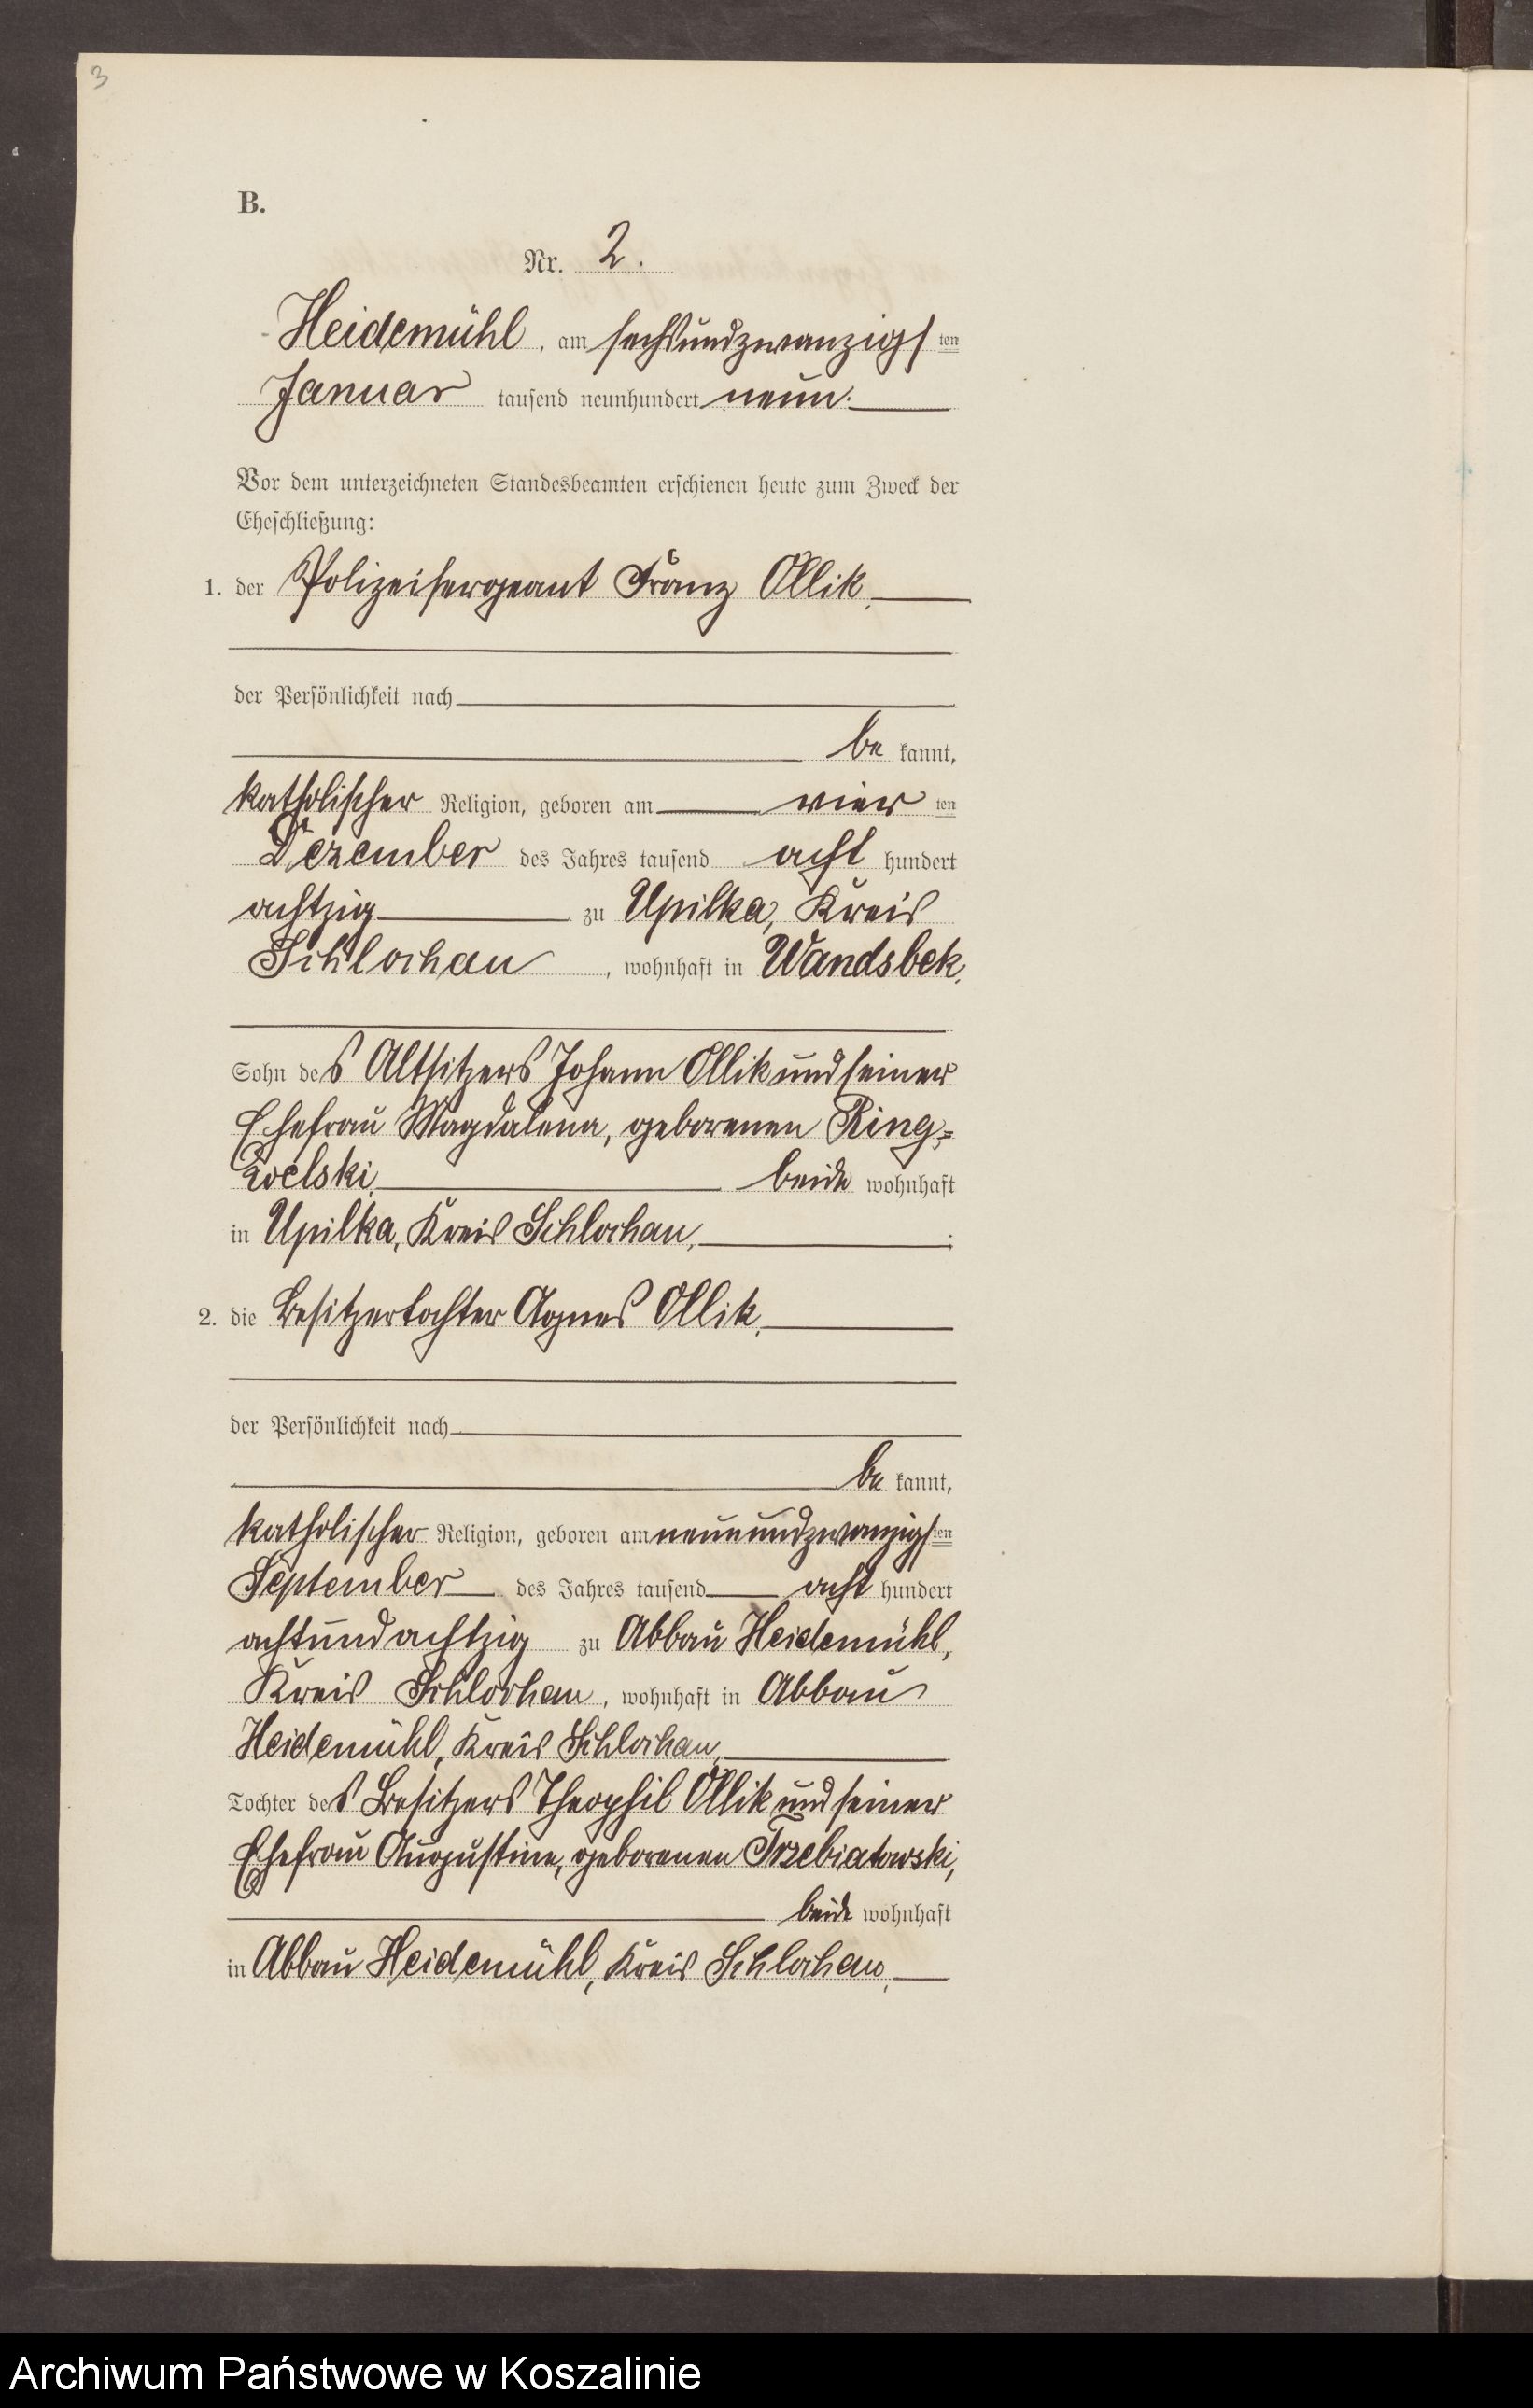 3
B.
Nr. 2.
Heidemühl, am sechsundzwanzigsten
Januar tausend neunhundert neun.
Vor dem unterzeichneten Standesbeamten erschienen heute zum Zweck der
Eheschließung:
1. der Polizeisergeant Franz Ollik,
der Persönlichkeit nach
be kannt,
katholischer Religion, geboren am vier ten
Dezember des Jahres tausend acht hundert
achtzig zu Upilka, Kreis
Schlochau, wohnhaft in Wandsbek,
Sohn des Altsitzers Johann Ollik und seiner
Ehefrau Magdalena, geborenen Ring-
woelski, beide wohnhaft
in Upilka, Kreis Schlochau, ;
2. die Besitzertochter Agnes Ollik,
der Persönlichkeit nach
be kannt,
katholischer Religion, geboren am neunundzwanzigsten
September des Jahres tausend acht hundert
achtundachtzig zu Abbau Heidemühl,
Kreis Schlochau, wohnhaft in Abbau
Heidemühl, Kreis Schlochau,
Tochter des Besitzers Theophil Ollik und seiner
Ehefrau Augustine, geborenen Trzebiatowski,
beide wohnhaft
in Abbau Heidemühl, Kreis Schlochau,
Archiwum Państwowe w Koszalinie